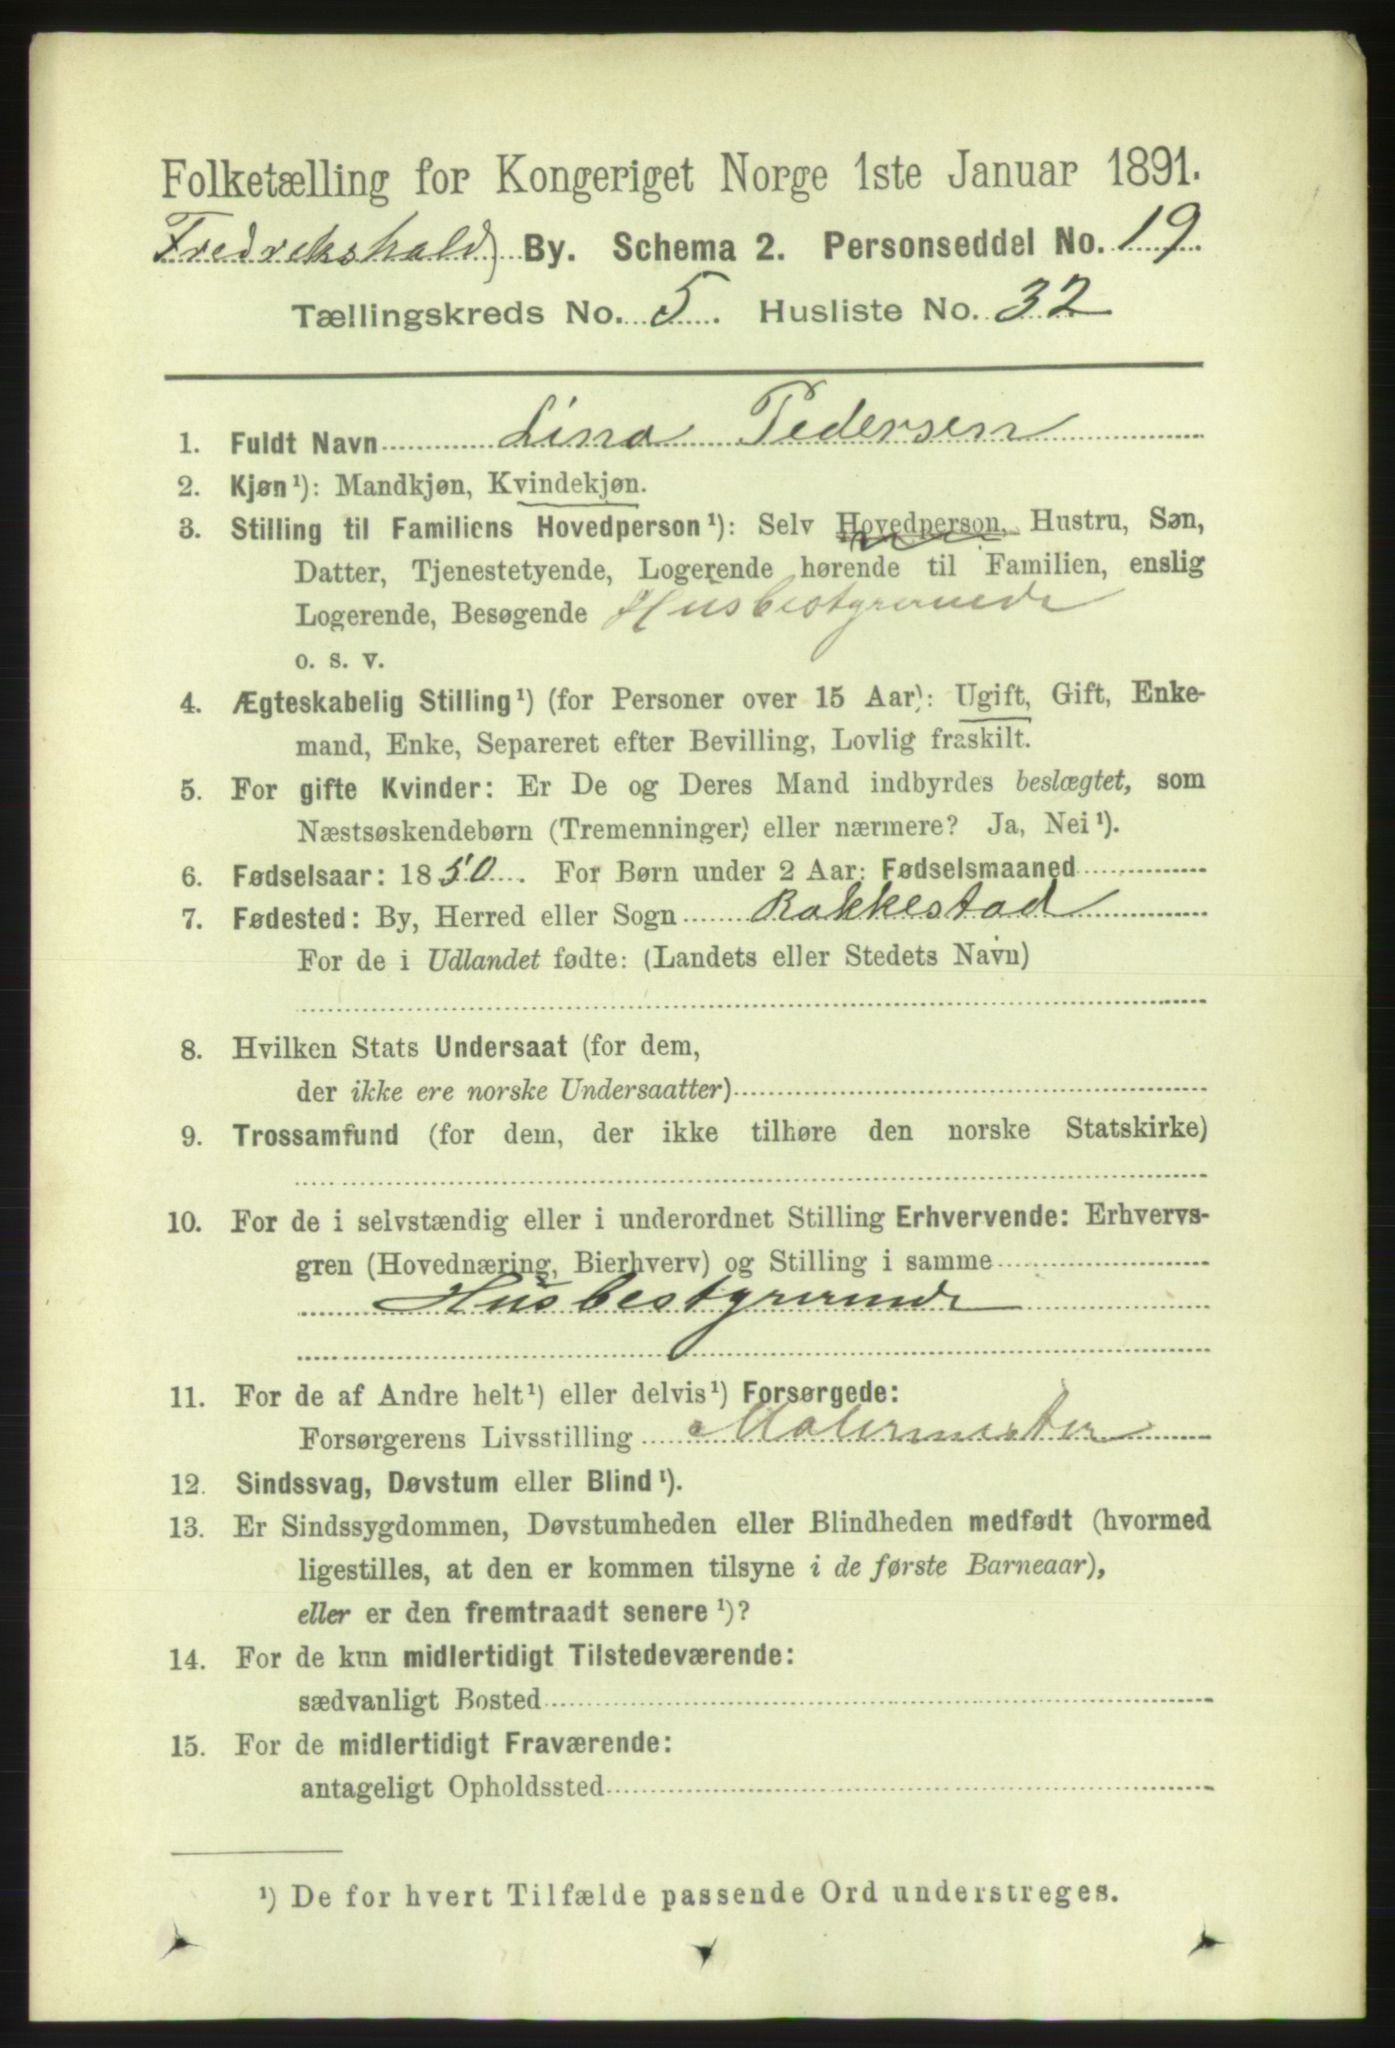 Folketælling for Kongeriget Norge 1ste Januar 1891.
Fredrikshald By. Schema 2. Personseddel No. 19
Tællingskreds No. 5. Husliste No. 32
1. Fuldt Navn Lina Pedersen
2. Kjøn¹): Mandkjøn, Kvindekjøn.
3. Stilling til Familiens Hovedperson¹): Selv Hovedperson, Hustru, Søn,
Datter, Tjenestetyende, Logerende hørende til Familien, enslig
Logerende, Besøgende Husbestyrerinde
o. s. v.
4. Ægteskabelig Stilling¹) (for Personer over 15 Aar): Ugift, Gift, Enke-
mand, Enke, Separeret efter Bevilling, Lovlig fraskilt.
5. For gifte Kvinder: Er De og Deres Mand indbyrdes beslægtet, som
Næstsøskendebørn (Tremenninger) eller nærmere? Ja, Nei¹).
6. Fødselsaar: 1850. For Børn under 2 Aar: Fødselsmaaned
7. Fødested: By, Herred eller Sogn Rakkestad
For de i Udlandet fødte: (Landets eller Stedets Navn)
8. Hvilken Stats Undersaat (for dem,
der ikke ere norske Undersaatter)
9. Trossamfund (for dem, der ikke tilhøre den norske Statskirke)
10. For de i selvstændig eller i underordnet Stilling Erhvervende: Erhvervs-
gren (Hovednæring, Bierhverv) og Stilling i samme
Husbestyrerinde
11. For de af Andre helt¹) eller delvis¹) Forsørgede:
Forsørgerens Livsstilling Malermester
12. Sindssvag, Døvstum eller Blind¹).
13. Er Sindssygdommen, Døvstumheden eller Blindheden medfødt (hvormed
ligestilles, at den er kommen tilsyne i de første Barneaar),
eller er den fremtraadt senere¹)?
14. For de kun midlertidigt Tilstedeværende:
sædvanligt Bosted
15. For de midlertidigt Fraværende:
antageligt Opholdssted
¹) De for hvert Tilfælde passende Ord understreges.